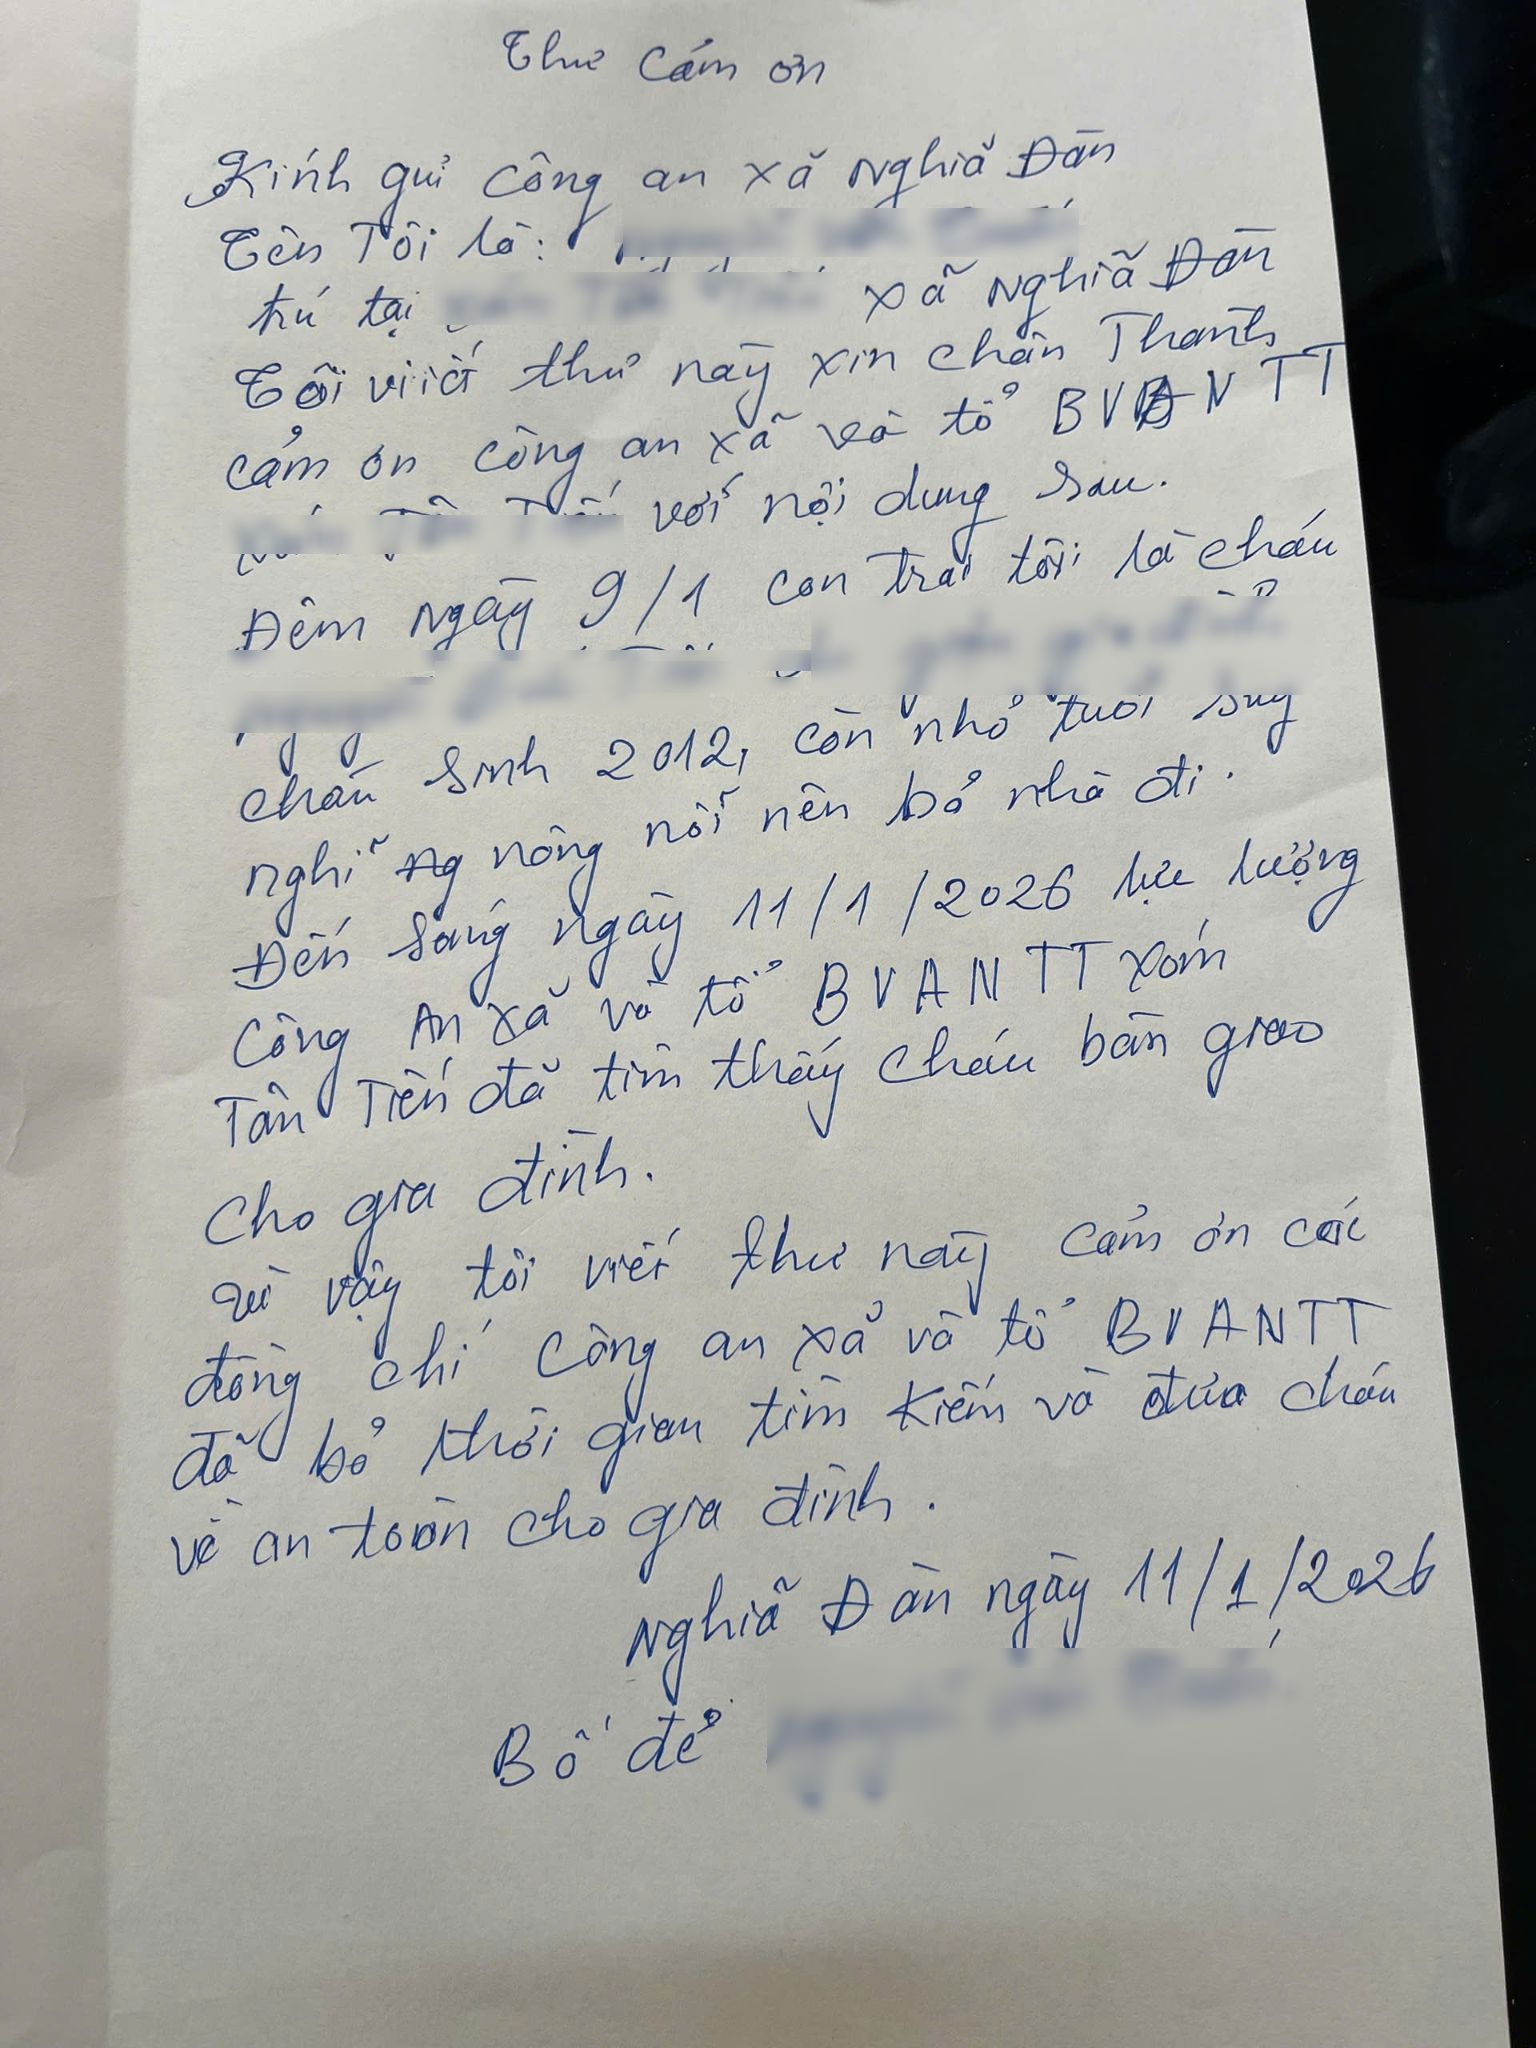 Thư Cảm ơn
Kính gửi Công an xã Nghĩa Đàn
Tên Tôi là:
trú tại xã Nghĩa Đàn
Tôi viết thư này xin chân Thành
cảm ơn công an xã và tổ BVANTT
với nội dung sau.
Đêm ngày 9/1 con trai tôi là cháu
cháu sinh 2012, còn nhỏ tuổi suy
nghĩ nông nổi nên bỏ nhà đi.
Đến sáng ngày 11/1/2026 lực lượng
Công An xã và tổ BVANTT xóm
Tân Tiến đã tìm thấy cháu bàn giao
cho gia đình.
Vì vậy tôi viết thư này cảm ơn các
đồng chí công an xã và tổ BVANTT
đã bỏ thời gian tìm kiếm và đưa cháu
về an toàn cho gia đình.
Nghĩa Đàn ngày 11/1/2026
Bố đẻ